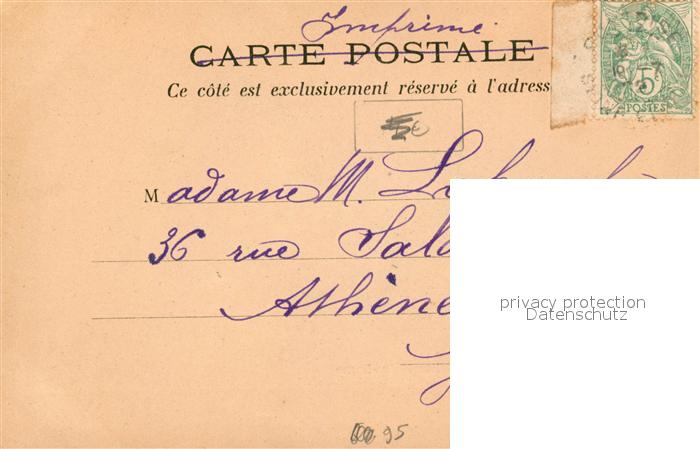 Imprimé
CARTE POSTALE
Ce côté est exclusivement réservé à l'adress
5
POSTES
Madame M.
36 rue Sala
Athène
privacy protection
Datenschutz
95